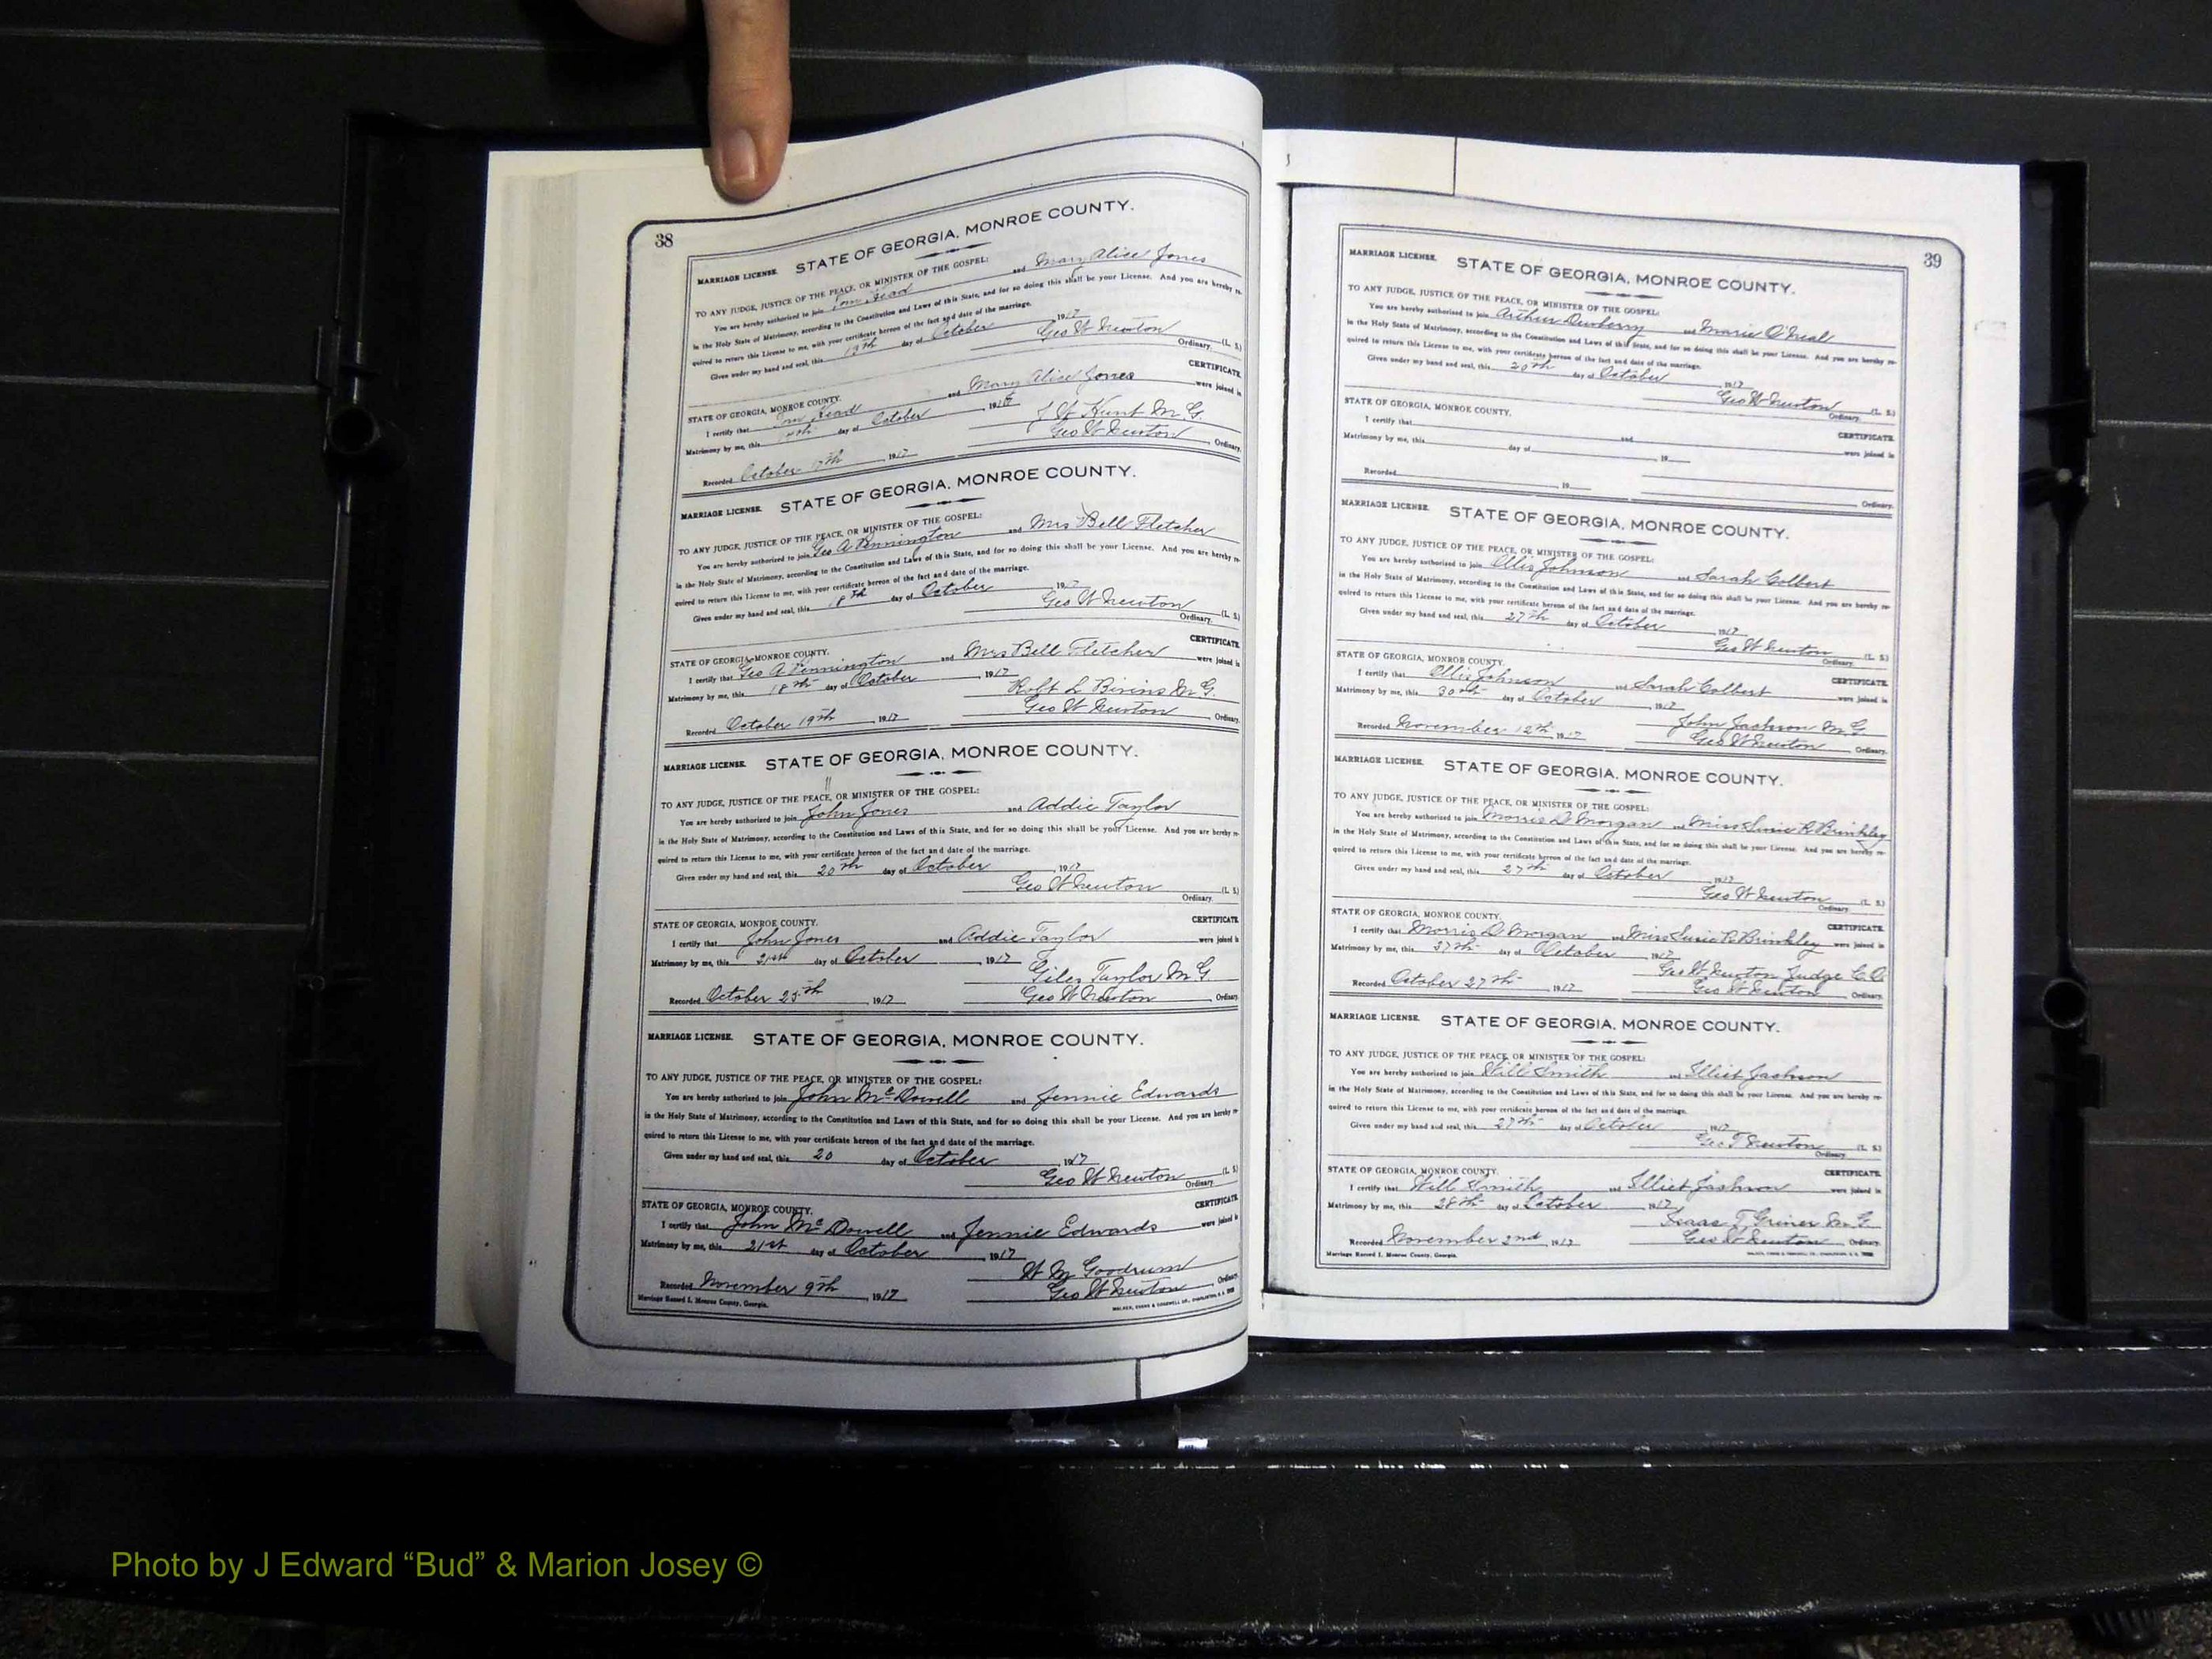 38
MARRIAGE LICENSE. STATE OF GEORGIA, MONROE COUNTY.
TO ANY JUDGE, JUSTICE OF THE PEACE, OR MINISTER OF THE GOSPEL:
You are hereby authorized to join Tom Head and Mary Alice Jones
in the Holy State of Matrimony, according to the Constitution and Laws of this State, and for so doing this shall be your License. And you are hereby re-
quired to return this License to me, with your certificate hereon of the fact and date of the marriage.
Given under my hand and seal, this day of October 1917
Geo W Newton (L. S.)
Ordinary.
STATE OF GEORGIA, MONROE COUNTY. CERTIFICATE.
I certify that Tom Head and Mary Alice Jones were joined in
Matrimony by me, this day of October
J W Hunt M G.
Recorded October 1917 Geo W Newton Ordinary.
MARRIAGE LICENSE. STATE OF GEORGIA, MONROE COUNTY.
TO ANY JUDGE, JUSTICE OF THE PEACE, OR MINISTER OF THE GOSPEL:
You are hereby authorized to join Geo A Pennington and Mrs Bell Fletcher
in the Holy State of Matrimony, according to the Constitution and Laws of this State, and for so doing this shall be your License. And you are hereby re-
quired to return this License to me, with your certificate hereon of the fact and date of the marriage.
Given under my hand and seal, this 18th day of October 1917
Geo W Newton (L. S.)
Ordinary.
STATE OF GEORGIA, MONROE COUNTY. CERTIFICATE.
I certify that Geo A Pennington and Mrs Bell Fletcher were joined in
Matrimony by me, this 18th day of October 1917
Robt L Bivins M G.
Recorded October 19th 1917 Geo W Newton Ordinary.
MARRIAGE LICENSE. STATE OF GEORGIA, MONROE COUNTY.
TO ANY JUDGE, JUSTICE OF THE PEACE, OR MINISTER OF THE GOSPEL:
You are hereby authorized to join John Jones and Addie Taylor
in the Holy State of Matrimony, according to the Constitution and Laws of this State, and for so doing this shall be your License. And you are hereby re-
quired to return this License to me, with your certificate hereon of the fact and date of the marriage.
Given under my hand and seal, this 20th day of October 1917
Geo W Newton (L. S.)
Ordinary.
STATE OF GEORGIA, MONROE COUNTY. CERTIFICATE.
I certify that John Jones and Addie Taylor were joined in
Matrimony by me, this 21st day of October 1917
Giles Taylor M G
Recorded October 25th 1917 Geo W Newton Ordinary.
MARRIAGE LICENSE. STATE OF GEORGIA, MONROE COUNTY.
TO ANY JUDGE, JUSTICE OF THE PEACE, OR MINISTER OF THE GOSPEL:
You are hereby authorized to join John McDowell and Jennie Edwards
in the Holy State of Matrimony, according to the Constitution and Laws of this State, and for so doing this shall be your License. And you are hereby re-
quired to return this License to me, with your certificate hereon of the fact and date of the marriage.
Given under my hand and seal, this 20 day of October 1917
Geo W Newton (L. S.)
Ordinary.
STATE OF GEORGIA, MONROE COUNTY. CERTIFICATE.
I certify that John McDowell and Jennie Edwards were joined in
Matrimony by me, this 21st day of October 1917
W M Goodrum
Recorded November 9th 1917 Geo W Newton Ordinary.
Marriage Record I, Monroe County, Georgia.
39
MARRIAGE LICENSE. STATE OF GEORGIA, MONROE COUNTY.
TO ANY JUDGE, JUSTICE OF THE PEACE, OR MINISTER OF THE GOSPEL:
You are hereby authorized to join Arthur Dewberry and Marie O'Neal
in the Holy State of Matrimony, according to the Constitution and Laws of this State, and for so doing this shall be your License. And you are hereby re-
quired to return this License to me, with your certificate hereon of the fact and date of the marriage.
Given under my hand and seal, this 20th day of October 1917
Geo W Newton (L. S.)
Ordinary.
STATE OF GEORGIA, MONROE COUNTY. CERTIFICATE.
I certify that and were joined in
Matrimony by me, this day of 19
Recorded 19 Ordinary.
MARRIAGE LICENSE. STATE OF GEORGIA, MONROE COUNTY.
TO ANY JUDGE, JUSTICE OF THE PEACE, OR MINISTER OF THE GOSPEL:
You are hereby authorized to join Ollis Johnson and Sarah Colbert
in the Holy State of Matrimony, according to the Constitution and Laws of this State, and for so doing this shall be your License. And you are hereby re-
quired to return this License to me, with your certificate hereon of the fact and date of the marriage.
Given under my hand and seal, this 27th day of October 1917
Geo W Newton (L. S.)
Ordinary.
STATE OF GEORGIA, MONROE COUNTY. CERTIFICATE.
I certify that Ollis Johnson and Sarah Colbert were joined in
Matrimony by me, this 30th day of October 1917
John Jackson M G
Recorded November 12th 1917 Geo W Newton Ordinary.
MARRIAGE LICENSE. STATE OF GEORGIA, MONROE COUNTY.
TO ANY JUDGE, JUSTICE OF THE PEACE, OR MINISTER OF THE GOSPEL:
You are hereby authorized to join Morris D Morgan and Miss Susie R Brinkley
in the Holy State of Matrimony, according to the Constitution and Laws of this State, and for so doing this shall be your License. And you are hereby re-
quired to return this License to me, with your certificate hereon of the fact and date of the marriage.
Given under my hand and seal, this 27th day of October 1917
Geo W Newton (L. S.)
Ordinary.
STATE OF GEORGIA, MONROE COUNTY. CERTIFICATE.
I certify that Morris D Morgan and Miss Susie R Brinkley were joined in
Matrimony by me, this 27th day of October 1917
Geo W Newton Judge C O
Recorded October 27th 1917 Geo W Newton Ordinary.
MARRIAGE LICENSE. STATE OF GEORGIA, MONROE COUNTY.
TO ANY JUDGE, JUSTICE OF THE PEACE, OR MINISTER OF THE GOSPEL:
You are hereby authorized to join Will Smith and Illiet Jackson
in the Holy State of Matrimony, according to the Constitution and Laws of this State, and for so doing this shall be your License. And you are hereby re-
quired to return this License to me, with your certificate hereon of the fact and date of the marriage.
Given under my hand and seal, this 27th day of October 1917
Geo T Newton (L. S.)
Ordinary.
STATE OF GEORGIA, MONROE COUNTY. CERTIFICATE.
I certify that Will Smith and Illiet Jackson were joined in
Matrimony by me, this 28th day of October 1917
Isaac T Griner M G
Recorded November 2nd 1917 Geo W Newton Ordinary.
Marriage Record I, Monroe County, Georgia.
Photo by J Edward “Bud” & Marion Josey ©